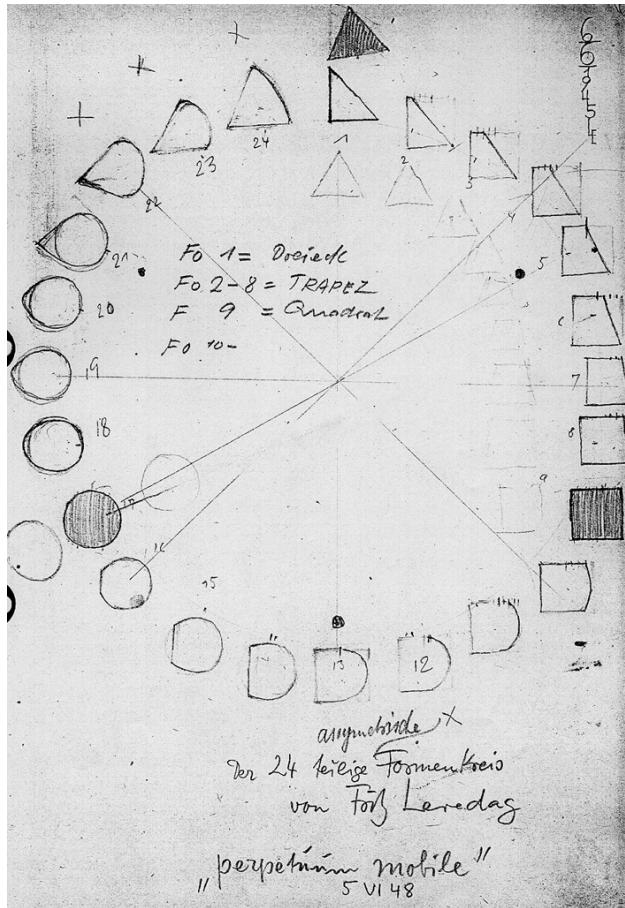 1
2
3
4
5
6
7
8
9
12
13
11
15
16
18
19
20
21
22
23
24
Fo 1 = Dreieck
Fo 2-8 = TRAPEZ
F 9 = Quadrat
Fo 10-
assymetrische X
Der 24 teilige Formenkreis
von Fritz Levedag
"perpetuum mobile"
5 VI 48